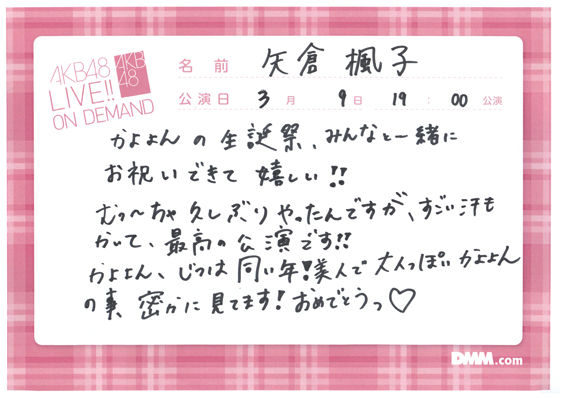 AKB48
LIVE!!
ON DEMAND
AKB
48
名前 矢倉 楓子
公演日 3月 9日 19:00 公演
かよよんの生誕祭、みんなと一緒に
お祝いできて嬉しい!!
むっ〜ちゃ久しぶりやったんですが、すごい汗も
かいて、最高の公演です!!
かよよん、じつは同い年!美人で大人っぽいかよよん
の事、密かに見てます!おめでとうっ♡
DMM.com